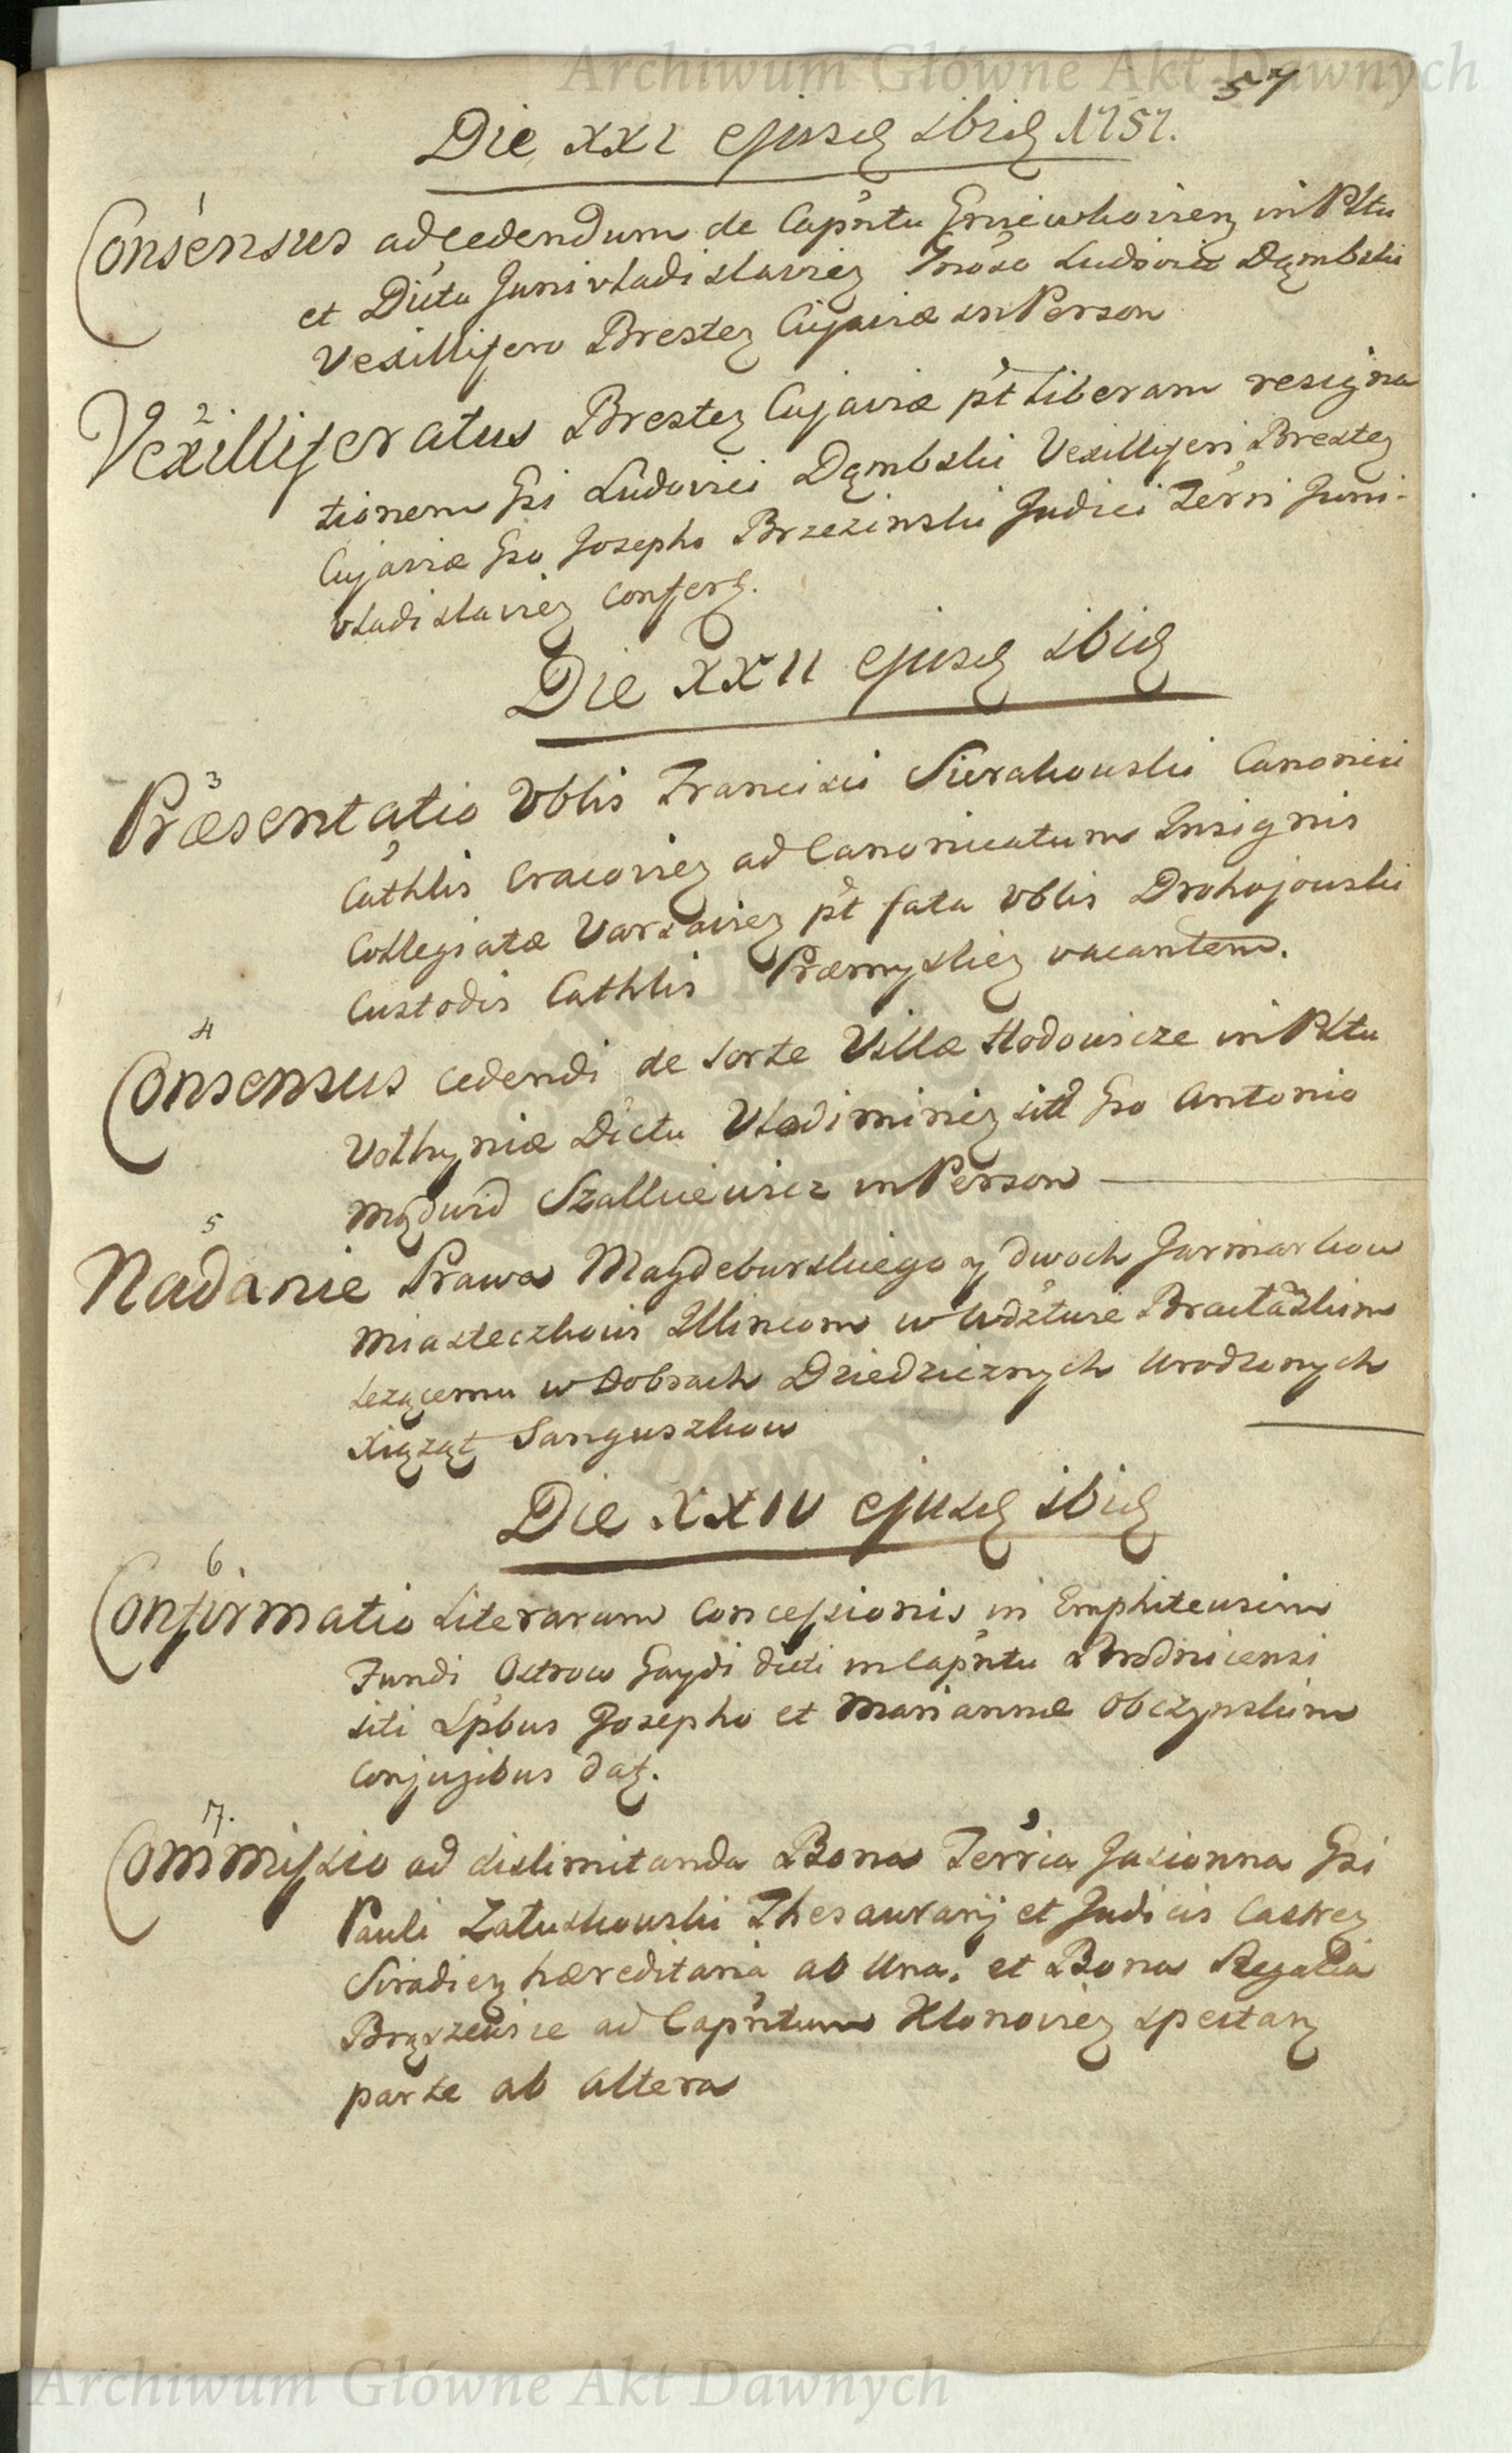 Archiwum Główne Akt Dawnych
57
Die XXI ejusdq ibidq 1757.
1
Consensus ad cedendum de Capntu Gniewkovien in Pltu
et Dictu Junivladislavien Gnoso Ludovico Dąmbski
Vexillifero Bresten Cujaviæ in Person
2
Vexilliferatus Bresten Cujaviæ pt liberam resigna
tionem Gsi Ludovici Dąmbski Vexilliferi Bresten
Cujaviæ Gso Josepho Brzezinski Judici Terri Juni-
vladislavien confert.
Die XXII ejusdq ibidq
3
Præsentatio Vblis Francisci Sierakowski Canonici
Cathlis Cracovien ad Canonicatum Insignis
Collegiatæ Varsavien pt fata Vblis Drohojowski
Custodis Cathlis Præmyslien vacantem.
4
Consensus cedendi de sorte Villæ Hodowicze in Pltu
Volhyniæ Dictu Vladimirien sitt Gso Antonio
Mądwid Szalkiewicz in Person
5
Nadanie Prawa Magdeburskiego y dwoch Jarmarkow
Miasteczkowi Ilincom w Wdztwie Bracłaskim
Lezącemu w Dobrach Dziedzicznych Urodzonych
Xiąząt Sanguszkow
Die XXIV ejusdq ibidq
6
Confirmatio Literarum Concessionis in Emphiteusim
Fundi Ostrow Gaydi dicti in Capntu Brodnicensi
siti Spbus Josepho et Mariannæ Obczynskim
Conjugibus dat.
7.
Commissio ad dislimitanda Bona Terria Jasionna Gsi
Pauli Załuskowski Thesaurarij et Judicis Castren
Siradien hæreditaria ab Una, et Bona Regalia
Brąszewice ad Capntum Klonovien spectan
parte ab altera
Archiwum Główne Akt Dawnych